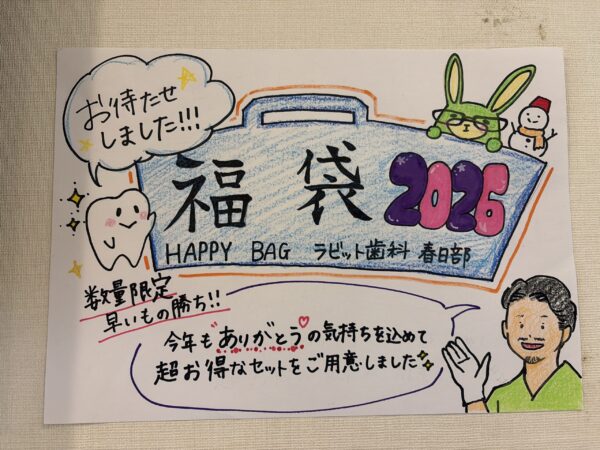 お待たせ
しました!!!
福袋 2026
HAPPY BAG ラビット歯科 春日部
数量限定
早いもの勝ち!!
今年も"ありがとう"の気持ちを込めて
超お得なセットをご用意しました